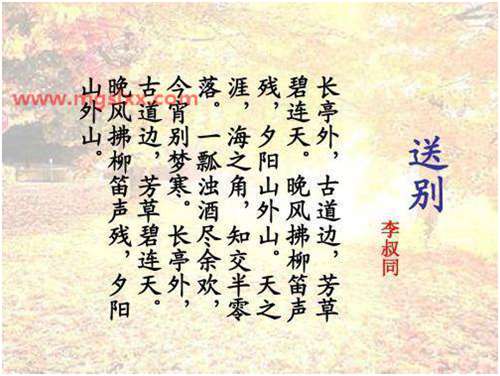 送别
李叔同
长亭外，古道边，芳草
碧连天。晚风拂柳笛声
残，夕阳山外山。天之
涯，海之角，知交半零
落。一瓢浊酒尽余欢，
今宵别梦寒。长亭外，
古道边，芳草碧连天。
晚风拂柳笛声残，夕阳
山外山。